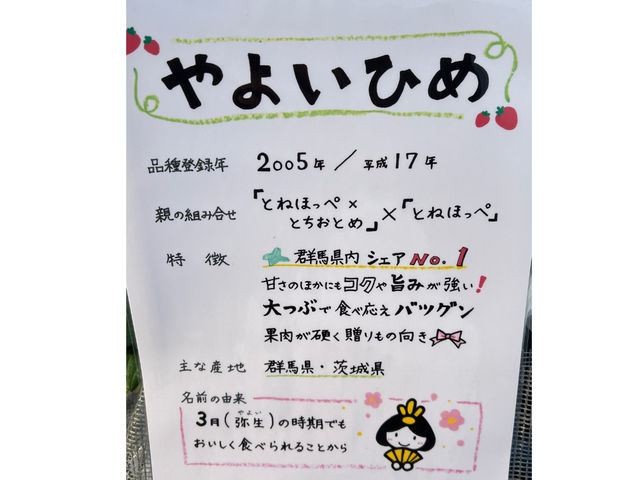 やよいひめ
品種登録年 2005年 / 平成17年
親の組み合せ 「とねほっぺ×
とちおとめ」×「とねほっぺ」
特徴 群馬県内 シェア No.1
甘さのほかにもコクや旨みが強い!
大つぶで食べ応えバツグン
果肉が硬く贈りもの向き
主な産地 群馬県・茨城県
名前の由来
3月(弥生)の時期でも
やよい
おいしく食べられることから